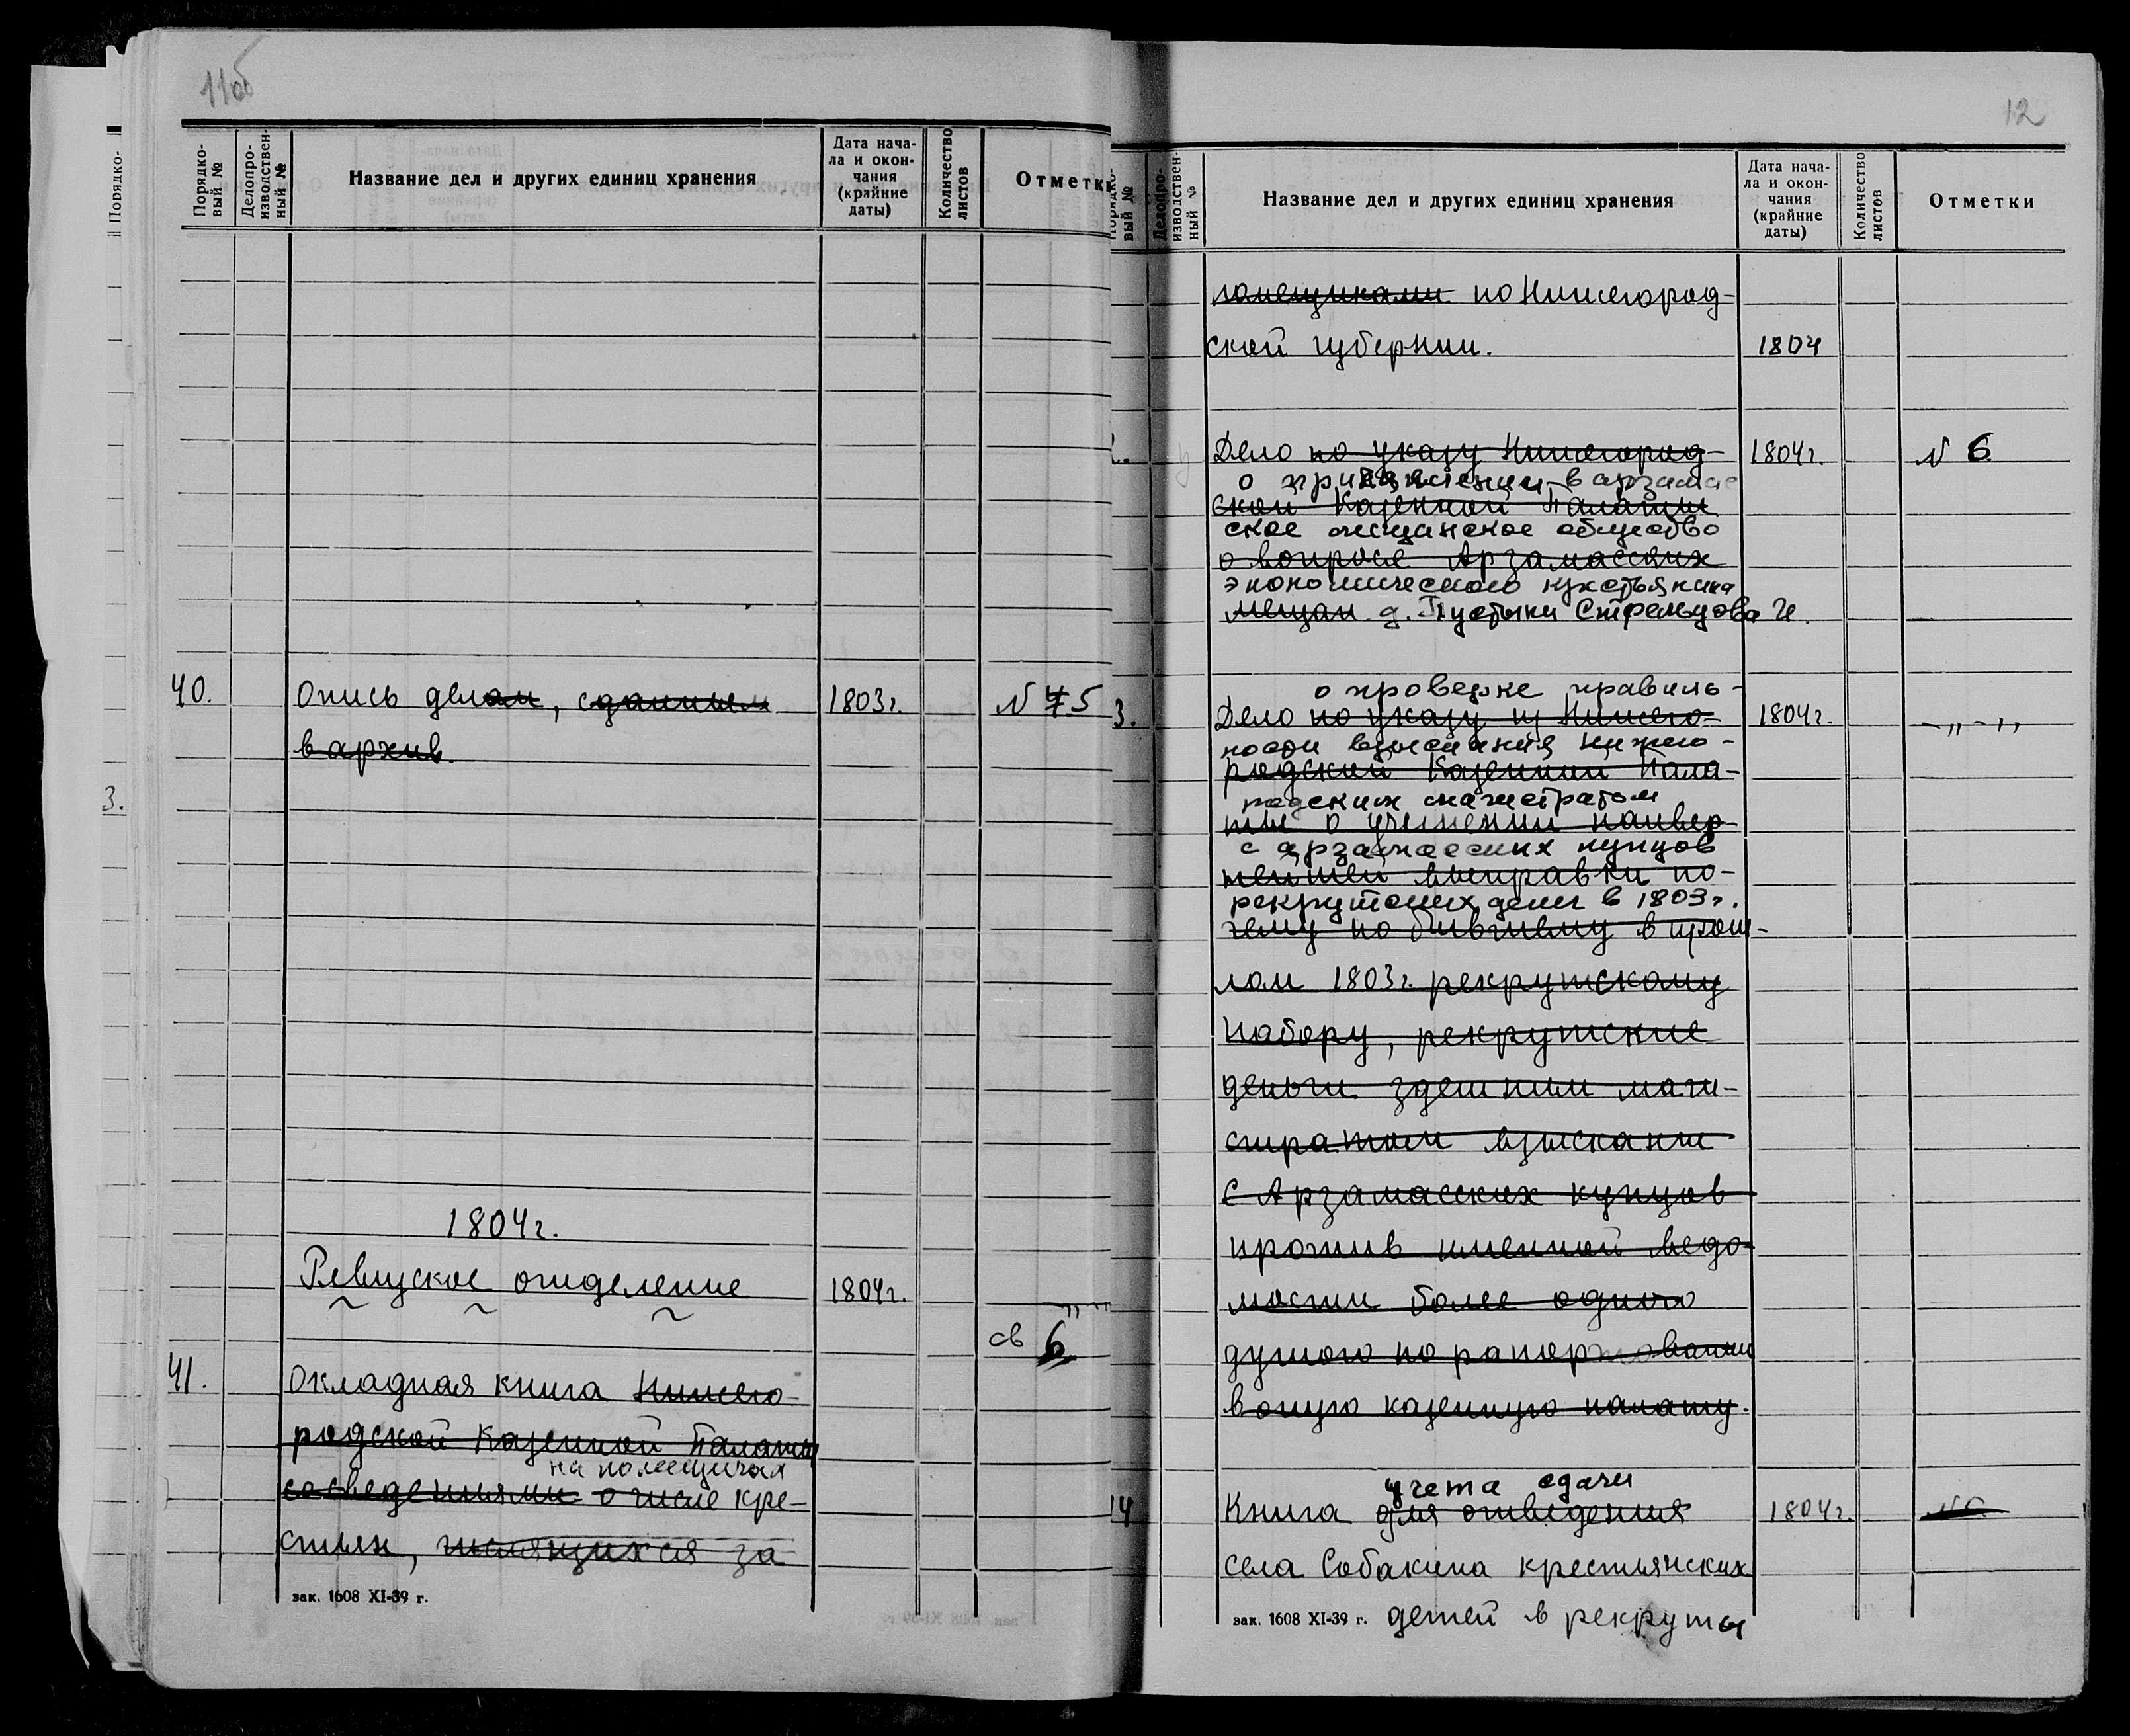 11об
Порядко-
Порядко-
вый №
Делопро-
изводствен-
ный №
Название дел и других единиц хранения
Дата нача-
ла и окон-
чания
(крайние
даты)
Количество
листов
Отметки
3.
40.
Опись делам, сданным
1803г.
N 75
в архив.
1804г.
Ревизское отделение
1804г.
св 6
41.
Окладная книга Нижего-
родской Казенной Палаты
на помещичьих
со сведениями о числе кре-
стьян, числящихся за
зак. 1608 XI-39 г.
12
Порядко-
вый №
Делопро-
изводствен-
ный №
Название дел и других единиц хранения
Дата нача-
ла и окон-
чания
(крайние
даты)
Количество
листов
Отметки
помещиками по Нижегород-
ской губернии.
1804
Дело по указу Нижегород-
1804г.
N 6
о причислении в арзамас
ской Казенной Палаты
ское мещанское общество
о вопросе Арзамасских
экономического крестьянина
мещан д. Пустыни Стрельцова И.
о проверке правиль-
3.
Дело по указу из Нижего-
1804г.
-„-„
ности взыскания нижего-
родской Казенной Пала-
родским магистратом
ты о учинении наивер-
с арзамасских купцов
нейшей выправки по-
рекрутских денег в 1803г.
чему по бывшему в прош-
лом 1803г. рекрутскому
набору, рекрутские
деньги здешним маги-
стратом взыскание
с Арзамасских купцов
против именной ведо-
мости более одного
душого по рапортовании
в оную казенную палату.
учета сдачи
14
Книга для отведения
1804г.
N6
села Собакина крестьянских
зак. 1608 XI-39 г.
детей в рекруты